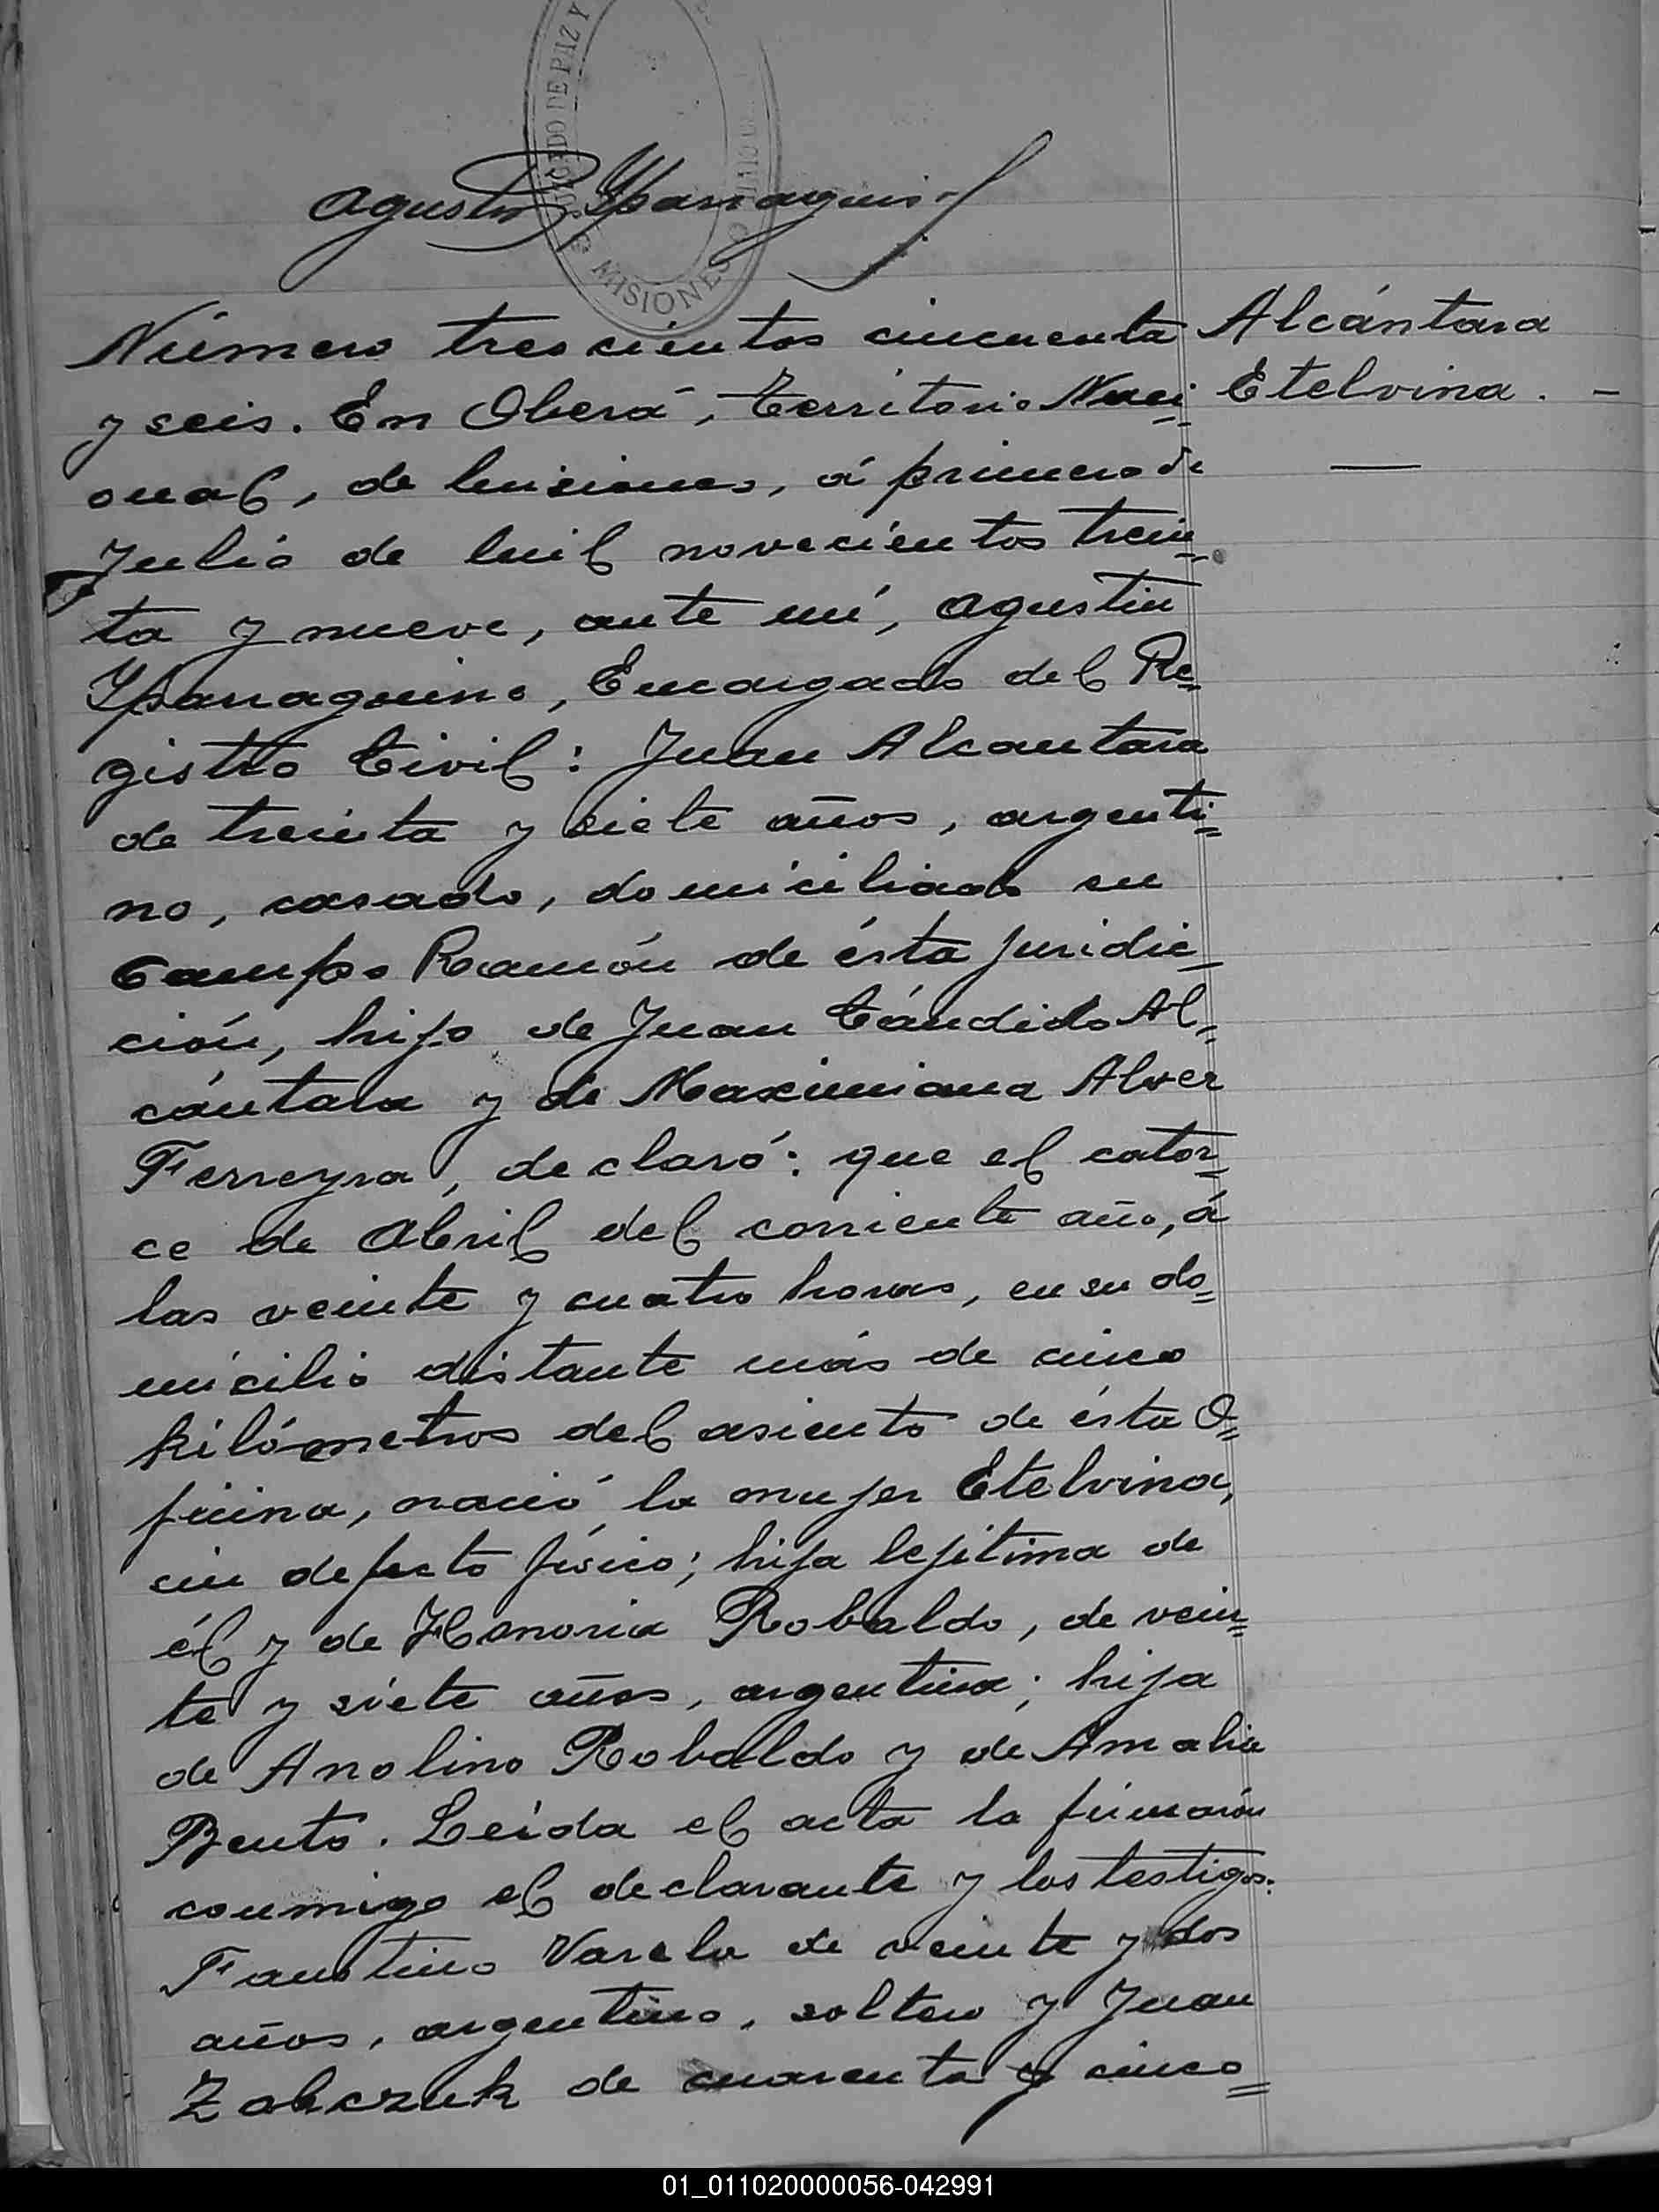 JUZGADO DE PAZ Y
MISIONES
Agustin Yparraguirre
Número trescientos cincuenta
y seis. En Oberá, Territorio Naci
onal, de Misiones, á primero de
Julio de mil novecientos trein
ta y nueve, ante mí, Agustin
Yparraguirre, Encargado del Re
gistro Civil: Juan Alcantara
de treinta y siete años, argenti
no, casado, domiciliado en
Campo Ramón de ésta juridic
ción, hijo de Juan Cándido Al
cántara y de Maximiana Alvez
Ferreyra, declaró: que el cator
ce de Abril del corriente año, á
las veinte y cuatro horas, en su do
micilio distante más de cinco
kilómetros del asiento de ésta O
ficina, nació la mujer Etelvina,
sin defecto físico; hija lejitima de
él y de Honoria Robaldo, de vein
te y siete años, argentina; hija
de Anolino Robaldo y de Amalia
Bento. Leída el acta la firmarón
conmigo el declarante y los testigos:
Faustino Varela de veinte y dos
años, argentino, soltero y Juan
Zabczuk de cuarenta y cinco
Alcántara
Etelvina. -
01_011020000056-042991